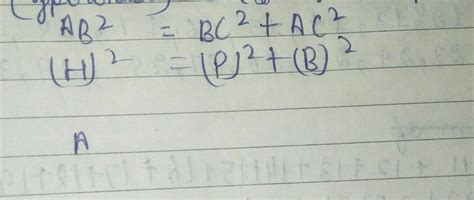 AB² = BC² + AC²
(H)² = (P)² + (B)²
A